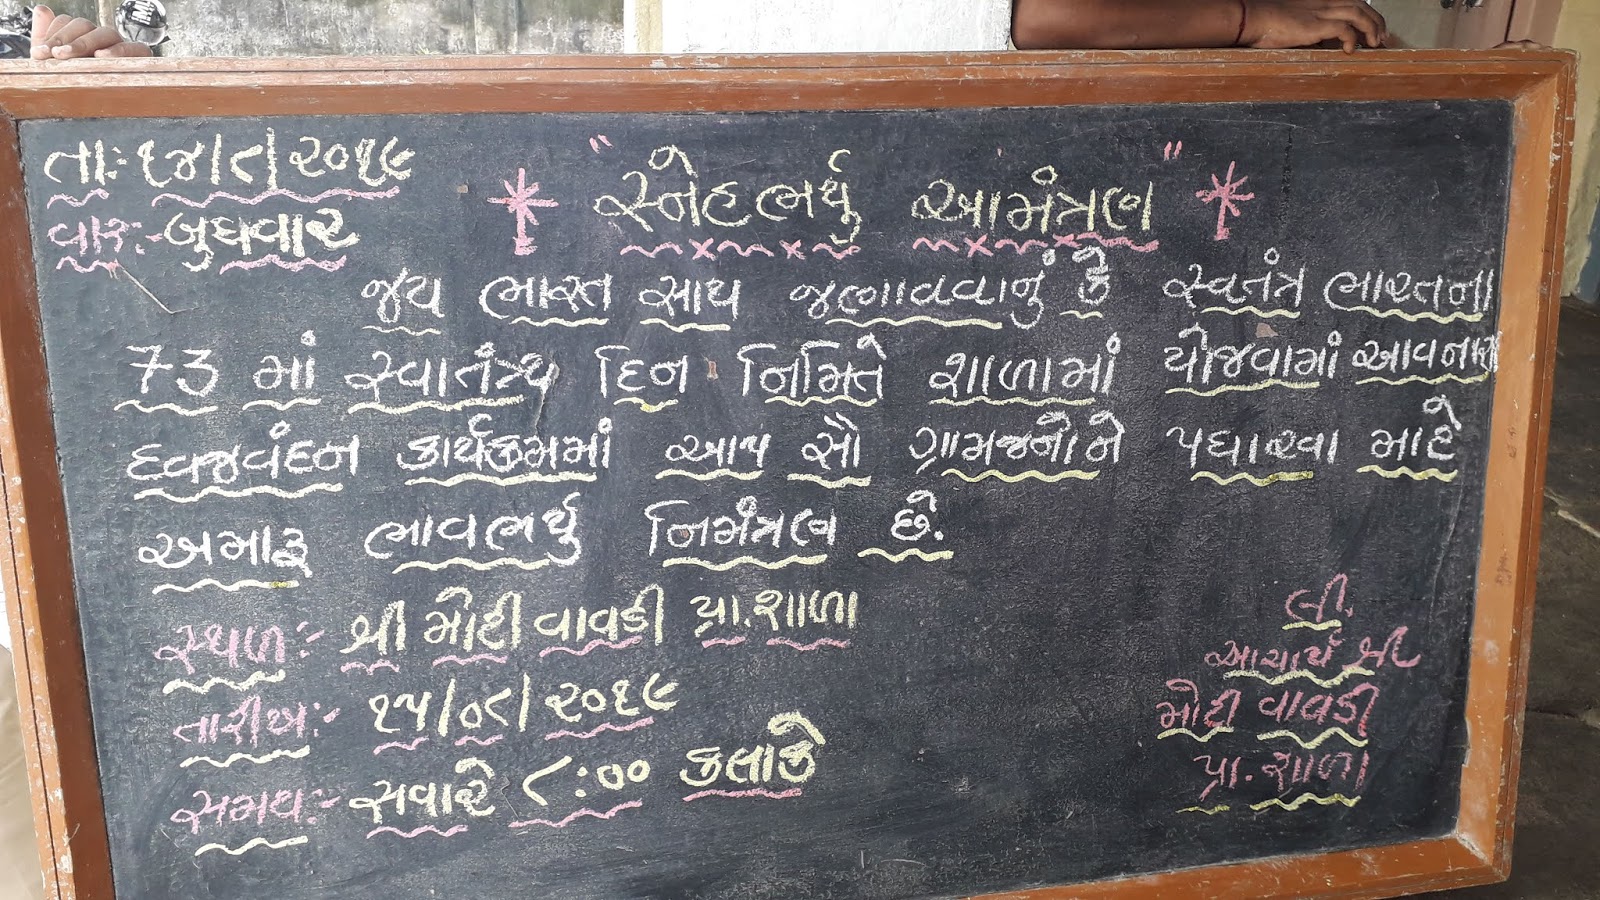 તાઃ૧૪/૮/૨૦૧૯
વારઃ- બુધવાર
" સ્નેહભર્યુ આમંત્રણ "
જય ભારત સાથ જણાવવાનું કે સ્વતંત્ર ભારતના
73 માં સ્વાતંત્ર્ય દિન નિમિતે શાળામાં યોજવામાં આવનારા
ધ્વજવંદન કાર્યક્રમમાં આપ સૌ ગ્રામજનોને પધારવા માટે
અમારૂ ભાવભર્યુ નિમંત્રણ છે.
સ્થળઃ- શ્રી મોટી વાવડી પ્રા. શાળા
તારીખઃ- ૧૫/૦૮/૨૦૧૯
સમયઃ- સવારે ૮:૦૦ કલાકે
લી.
આચાર્ય શ્રી
મોટી વાવડી
પ્રા. શાળા